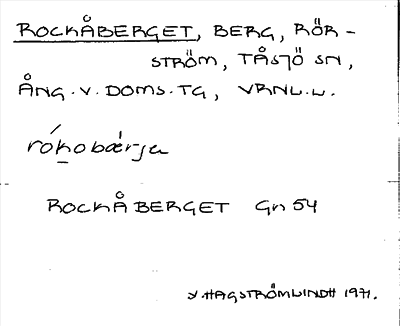 ROCKÅBERGET, BERG, RÖR-
STRÖM, TÅSJÖ SN,
ÅNG. V. DOMS. TG, VRNL.L.
rókobærjɐ
ROCKÅBERGET Gn 54
Y. HAGSTRÖMLINDH 1971.